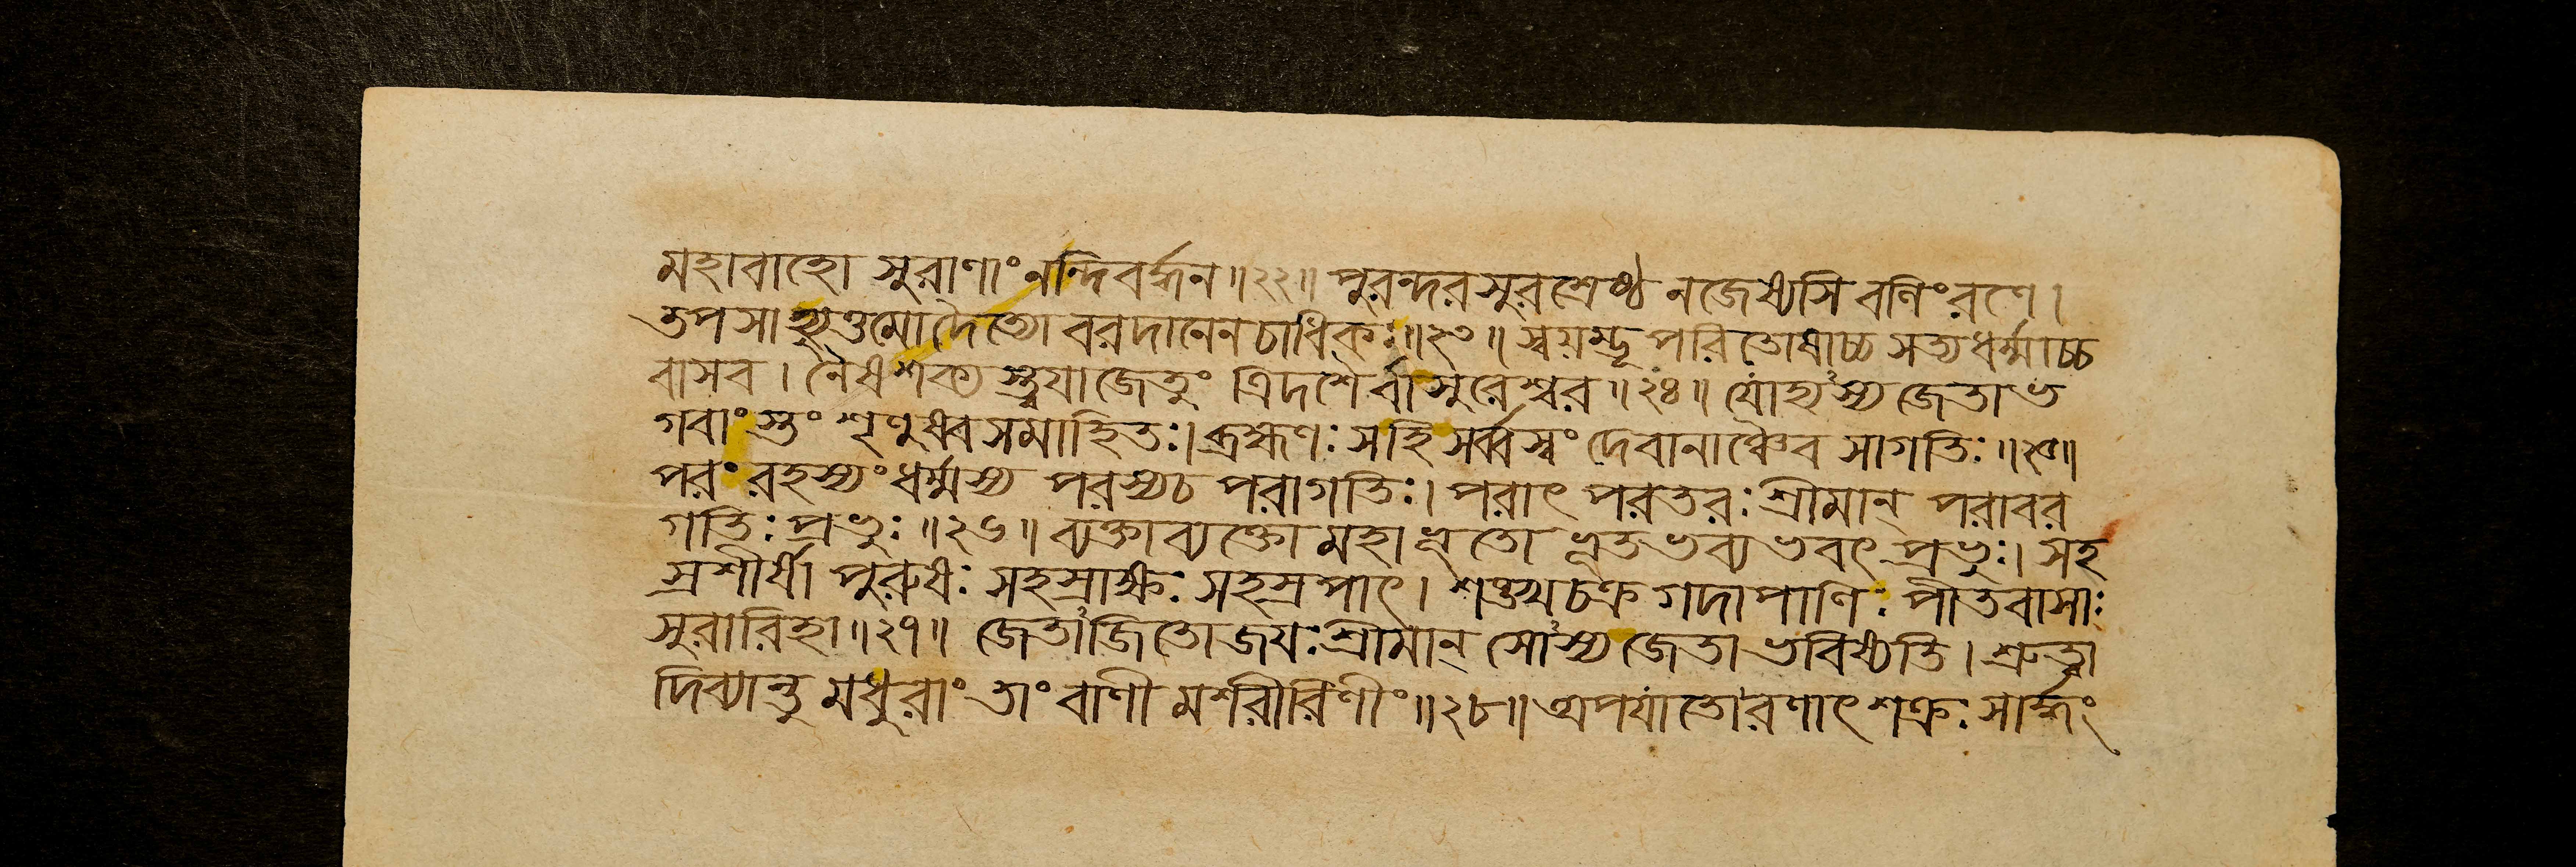 মহাবাহো সুরাণাং নন্দিবর্দ্ধন॥২২॥ পুরন্দরসুরশ্রেষ্ঠ নজেষ্যসি বণিংরণে।
তপসাহ্যুত্তমোদৈত্যো বরদানেনচাধিকঃ॥২৩॥ স্বয়ম্ভূপরিতোষাচ্চ সত্যধর্ম্মাচ্চ
বাসব। নৈষশক্যস্ত্বয়াজেতুং ত্রিদশৈর্বাসুরেশ্বর॥২৪॥ যোঽহ্যস্য জেতাভ
গবাংস্তং শৃণুষ্বসমাহিতঃ। ব্রহ্মণঃ সহি সর্ব্বস্বং দেবানাঞ্চৈব সাগতিঃ॥২৫॥
পরং রহস্যং ধর্ম্মস্য পরস্যচ পরাগতিঃ। পরাৎ পরতরঃ শ্রীমান্ পরাবর
গতিঃ প্রভুঃ॥২৬॥ ব্যক্তাব্যক্তো মহাভূতো ভূতভব্যভবৎ প্রভুঃ। সহ
স্রশীর্ষা পুরুষঃ সহস্রাক্ষঃ সহস্রপাৎ। শঙ্খচক্রগদাপাণিঃ পীতবাসাঃ
সুরারিহা॥২৭॥ জেতাঽজিতোজয়ঃ শ্রীমান্ সোঽস্যজেতা ভবিষ্যতি। শ্রুত্বা
দিব্যান্তু মধুরাং তাং বাণীমশরীরিণীং॥২৮॥ অপযাতোরণাৎ শক্রঃ সার্দ্ধং